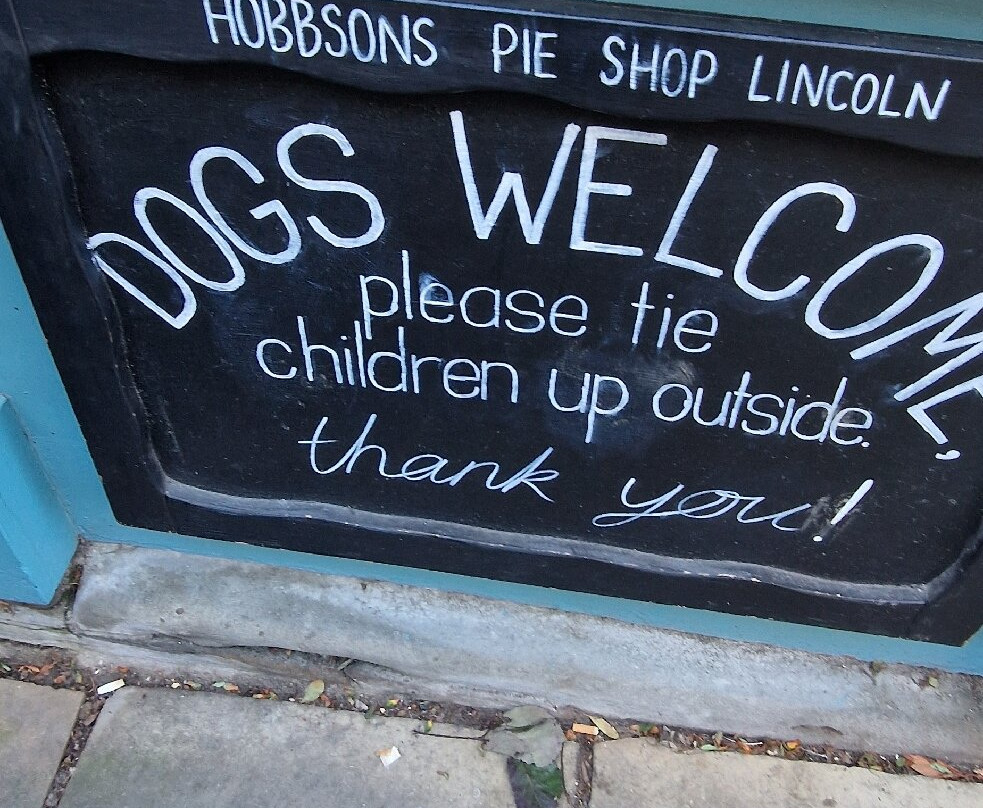 HOBBSONS PIE SHOP LINCOLN
DOGS WELCOME,
please tie
children up outside.
thank you!